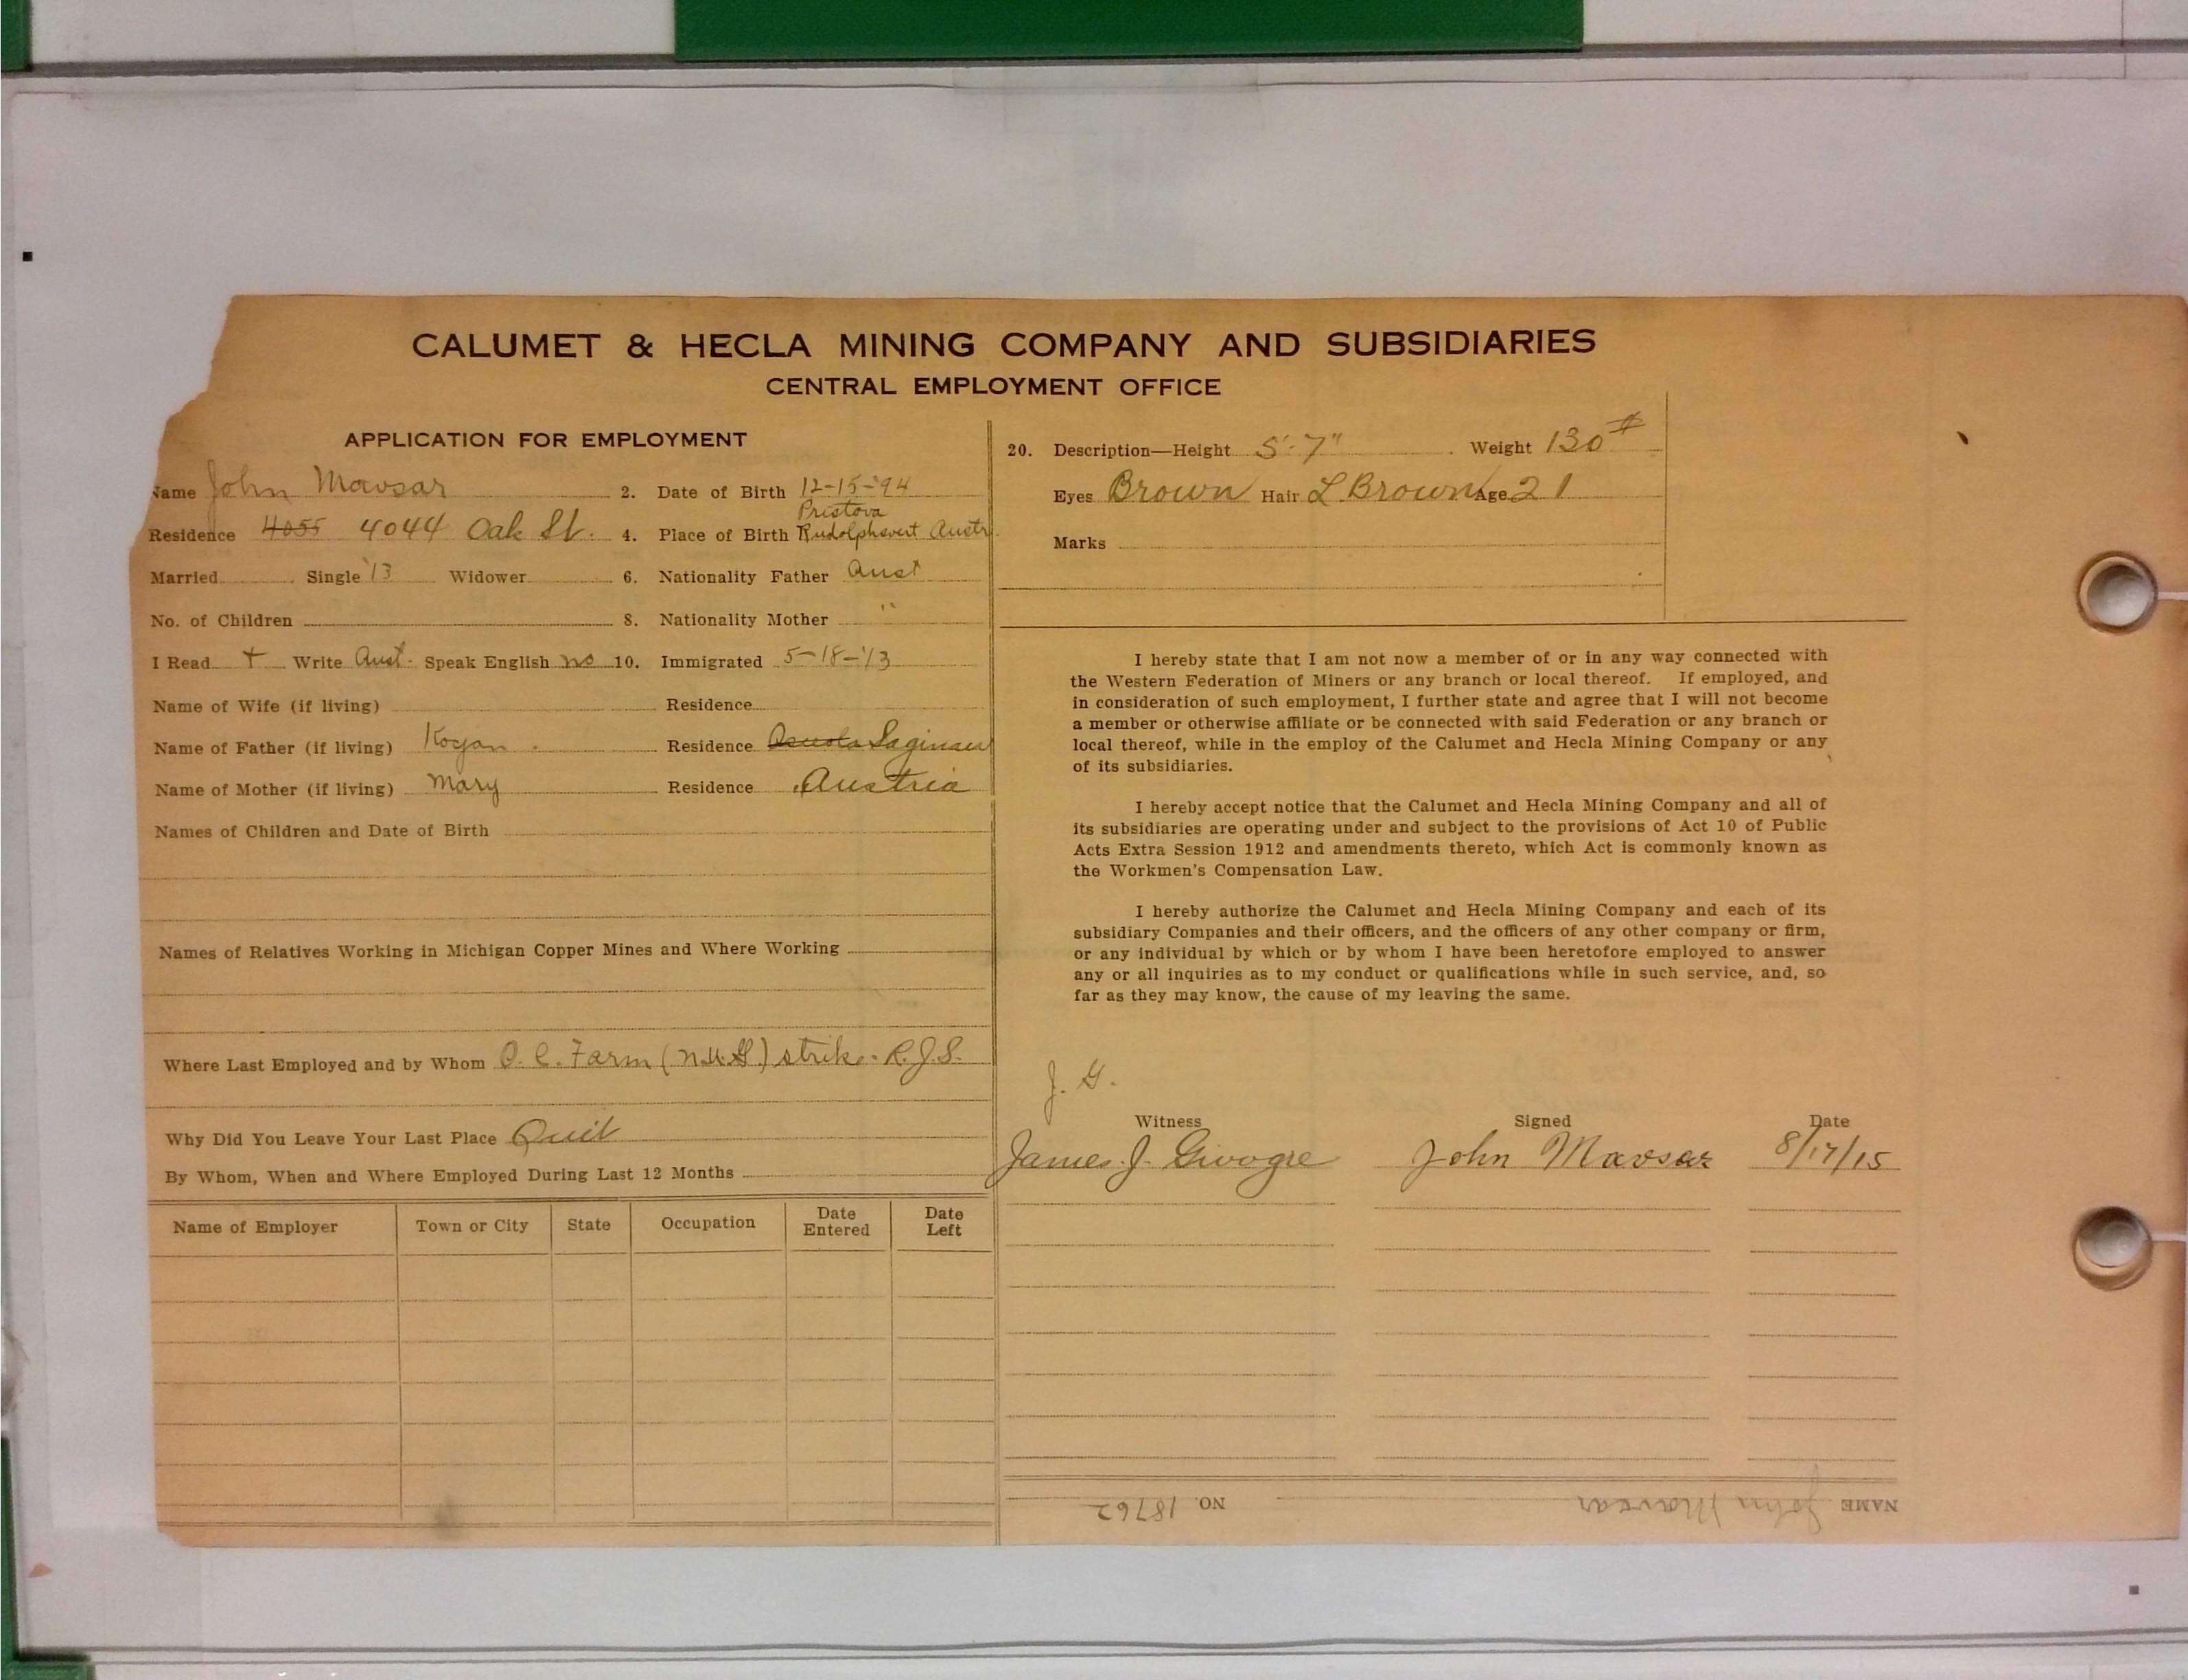 CALUMET & HECLA MINING COMPANY AND SUBSIDIARIES
CENTRAL EMPLOYMENT OFFICE
APPLICATION FOR EMPLOYMENT
Name John Mavsar
2. Date of Birth 12-15-'94
Pristova
Residence 4055 4044 Oak St.
4. Place of Birth Rudolphswert Austr.
Married Single '13 Widower
6. Nationality Father Aust
No. of Children
8. Nationality Mother "
I Read + Write Aust. Speak English no
10. Immigrated 5-18-'13
Name of Wife (if living) Residence
Name of Father (if living) Residence Osceola Saginaw
Name of Mother (if living) Mary Residence Austria
Names of Children and Date of Birth
Names of Relatives Working in Michigan Copper Mines and Where Working
Where Last Employed and by Whom O. C. Farm ( ) strike. R.J.S.
Why Did You Leave Your Last Place Quit
By Whom, When and Where Employed During Last 12 Months
Name of Employer Town or City State Occupation Date Entered Date Left
20. Description—Height 5'-7" Weight 130#
Eyes Brown Hair L. Brown Age 21
Marks
I hereby state that I am not now a member of or in any way connected with
the Western Federation of Miners or any branch or local thereof. If employed, and
in consideration of such employment, I further state and agree that I will not become
a member or otherwise affiliate or be connected with said Federation or any branch or
local thereof, while in the employ of the Calumet and Hecla Mining Company or any
of its subsidiaries.
I hereby accept notice that the Calumet and Hecla Mining Company and all of
its subsidiaries are operating under and subject to the provisions of Act 10 of Public
Acts Extra Session 1912 and amendments thereto, which Act is commonly known as
the Workmen's Compensation Law.
I hereby authorize the Calumet and Hecla Mining Company and each of its
subsidiary Companies and their officers, and the officers of any other company or firm,
or any individual by which or by whom I have been heretofore employed to answer
any or all inquiries as to my conduct or qualifications while in such service, and, so
far as they may know, the cause of my leaving the same.
J. G.
Witness Signed Date
James J. John Mavsar 8/17/15
NAME John Mavsar NO. 18762